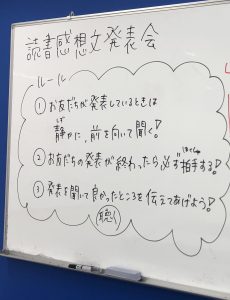 読書感想文発表会
ルール
① お友だちが発表しているときは
しず
静かに、前を向いて聞く!
はくしゅ
② お友だちの発表が終わったら必ず拍手する!
③ 発表を聞いて良かったところを伝えてあげよう!
聴く